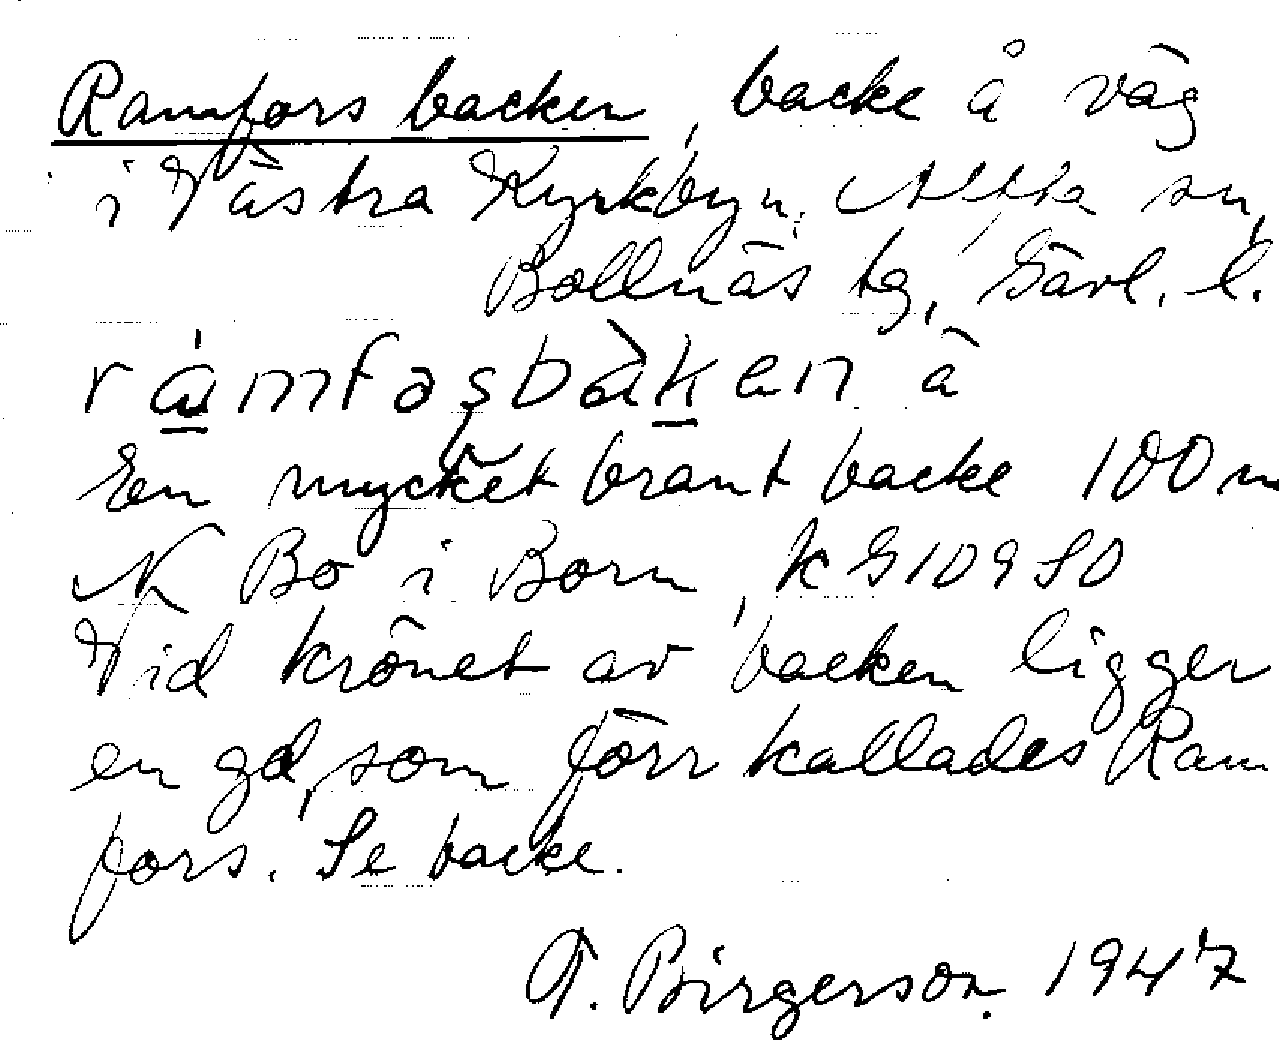 Ramfors backen, backe å väg
i Västra Kyrkbyn. Alfta sn,
Bollnäs tg, Gävl. l.
En mycket brant backe 100 m
N Bo i Born, k G10950
Vid krönet av backen ligger
en gd, som förr kallades Ram
fors. Se backe.
T. Birgerson. 1947